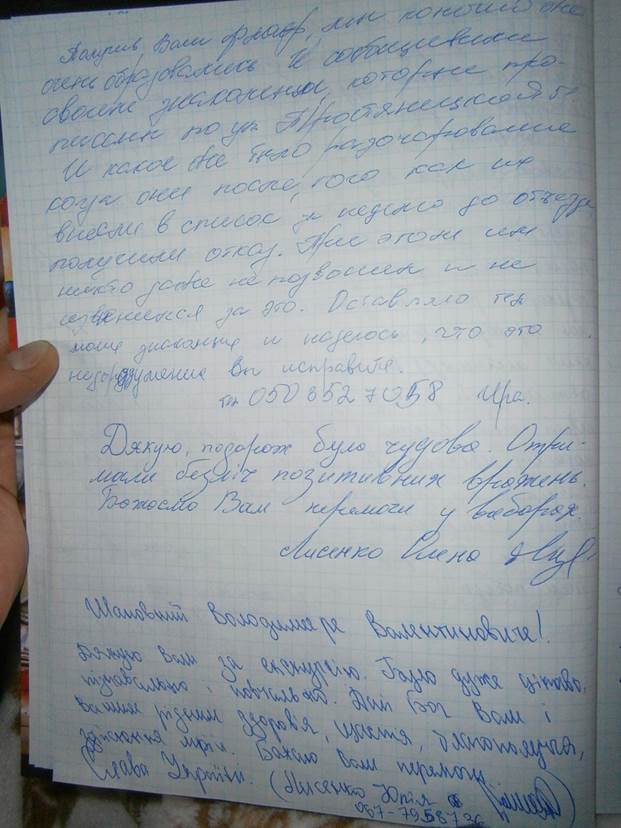 Получив Вам флаер, мы конечно они
очень обрадовались и сообщив или
своим знакомым, которые про-
писаны по ул Тростянецкая 5
И какое же было разочарование
когда они после, того как их
внесли в список за неделю до отъезда
получили отказ. При этом им
никто даже не позвонил и не
извинился за это. Оставляю тел
моих знакомых и надеюсь, что это
недоразумение Вы исправите.
тел 050 852 70 58 Ира.
Дякую, подорож була чудова. Отри-
мали безліч позитивних вражень.
Бажаємо Вам перемоги у виборах.
Лисенко Олена
Шановний Володимире Валентиновиче!
Дякую Вам за екскурсію. Було дуже цікаво,
пізнавально і повчально. Дай Бог Вам і
Вашим рідним здоров'я, щастя, благополуччя,
здійснення мрій. Бажаю Вам перемоги
Слава Україні. (Лисенко Юлія
067-7958736